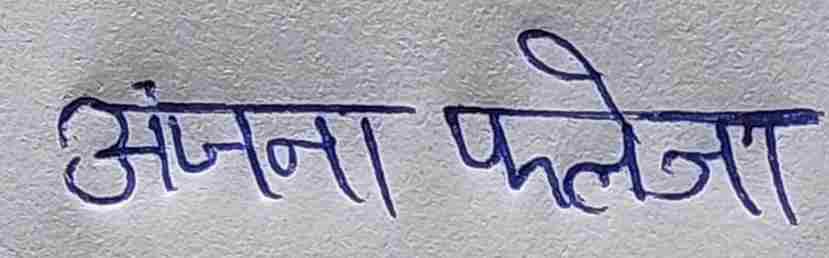 अंजना फलेजा